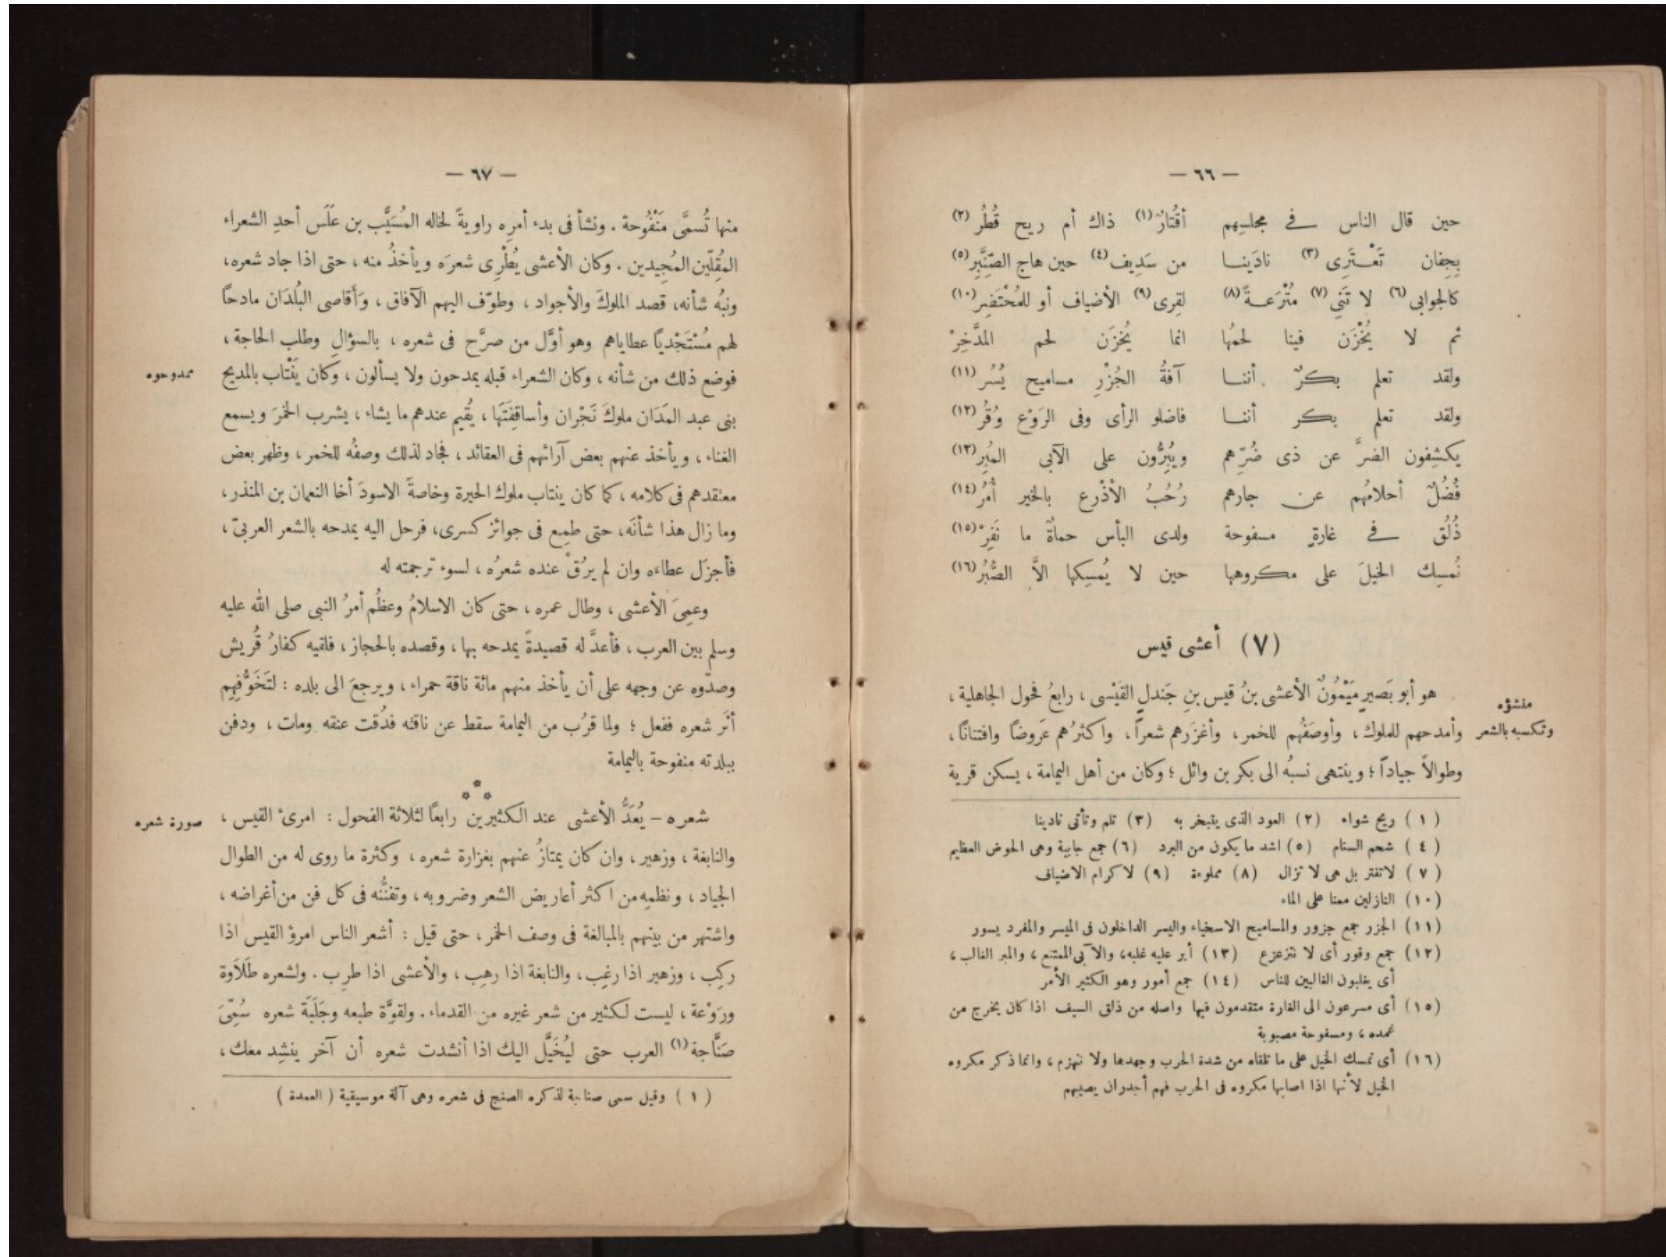 — ٦٦ —
حين قال الناس في مجلسِهم أقُتارٌ (١) ذاك أم ريح قُطُر (٢)
بِجِفان تَعْتَرِى (٣) نادَينا من سَدِيف (٤) حين هاج الصِّنَّبِر (٥)
كالجوابي (٦) لا تَنى (٧) مُتْرَعةً (٨) لِقِرى (٩) الأضياف أو للمُحْتَضِر (١٠)
ثم لا يُخْزَن فينا لحمُها انما يُخْزَن لحم المدَّخِرْ
ولقد تعلم بكرٌ أننا آفةُ الجُزْرِ مساميح يُسُر (١١)
ولقد تعلم بكر أننا فاضلو الرأى وفى الرَوْع وُقُر (١٢)
يكشِفون الضرَّ عن ذى ضُرِّهم ويُبِرُّون على الآبى المُبِر (١٣)
فُضُلٌ أحلامُهم عن جارهم رُحُبُ الأذْرع بالخير أُمُر (١٤)
ذُلُق في غارةٍ مسفوحة ولدى البأس حماةٌ ما نَفِرْ (١٥)
نُمسِك الخيلَ على مكروهها حين لا يُمسِكها الاَّ الصُّبُر (١٦)
(٧) أعشى قيس
منشؤه
وتكسبه بالشعر
هو أبو بَصير مَيْمُونٌ الأعشى بنُ قيس بنِ جَندلٍ القَيْسى ، رابعُ فحول الجاهلية ،
وأمدحهم للملوك، وأوصَفُهم للخمر، وأغزَرهم شعراً، واكثرُهم عَروضًا وافتنانًا،
وطوالاً جياداً ؛ وينتهى نسبُه الى بكر بن وائل ؛ وكان من أهل اليمامة ، يسكن قرية
(١) ريح شواء (٢) العود الذى يتبخر به (٣) تلم وتأتى نادينا
(٤) شحم السنام (٥) اشد ما يكون من البرد (٦) جمع جابية وهى الحوض العظيم
(٧) لاتفتر بل هى لا تزال (٨) مملوءة (٩) لاكرام الاضياف
(١٠) النازلين معنا على الماء
(١١) الجزر جمع جزور والمساميح الاسخياء واليسر الداخلون فى الميسر والمفرد يسور
(١٢) جمع وقور أى لا تتزعزع (١٣) أبر عليه غلبه، والآبى الممتنع ، والمبر الغالب ،
أى يغلبون الغالبين للناس (١٤) جمع أمور وهو الكثير الأمر
(١٥) أى مسرعون الى الغارة متقدمون فيها واصله من ذلق السيف اذا كان يخرج من
غمده ، ومسفوحة مصبوبة
(١٦) أى نمسك الخيل على ما تلقاه من شدة الحرب وجهدها ولا نهزم ، وانما ذكر مكروه
الخيل لأنها اذا اصابها مكروه فى الحرب فهم أجدران يصيبهم
— ٦٧ —
منها تُسمَّى مَنْفُوحة . ونشأ فى بدء أمرِه راويةً لخاله المُسَيَّب بن عَلَس أحدِ الشعراء
المقُلّين المُجيدين . وكان الأعشى يُطْرِى شعرَه ويأخذُ منه ، حتى اذا جاد شعره،
ونبُه شأنه، قصد الملوكَ والأجواد ، وطوّف اليهم الآفاق ، وَأَقاصى البُلدَان مادحاً
لهم مُسْتَجْدياً عطاياهم وهو أوَّل من صرَّح فى شعره ، بالسؤالِ وطلب الحاجة ،
فوضع ذلك من شأنه ، وكان الشعراء قبله يمدحون ولا يسألون ، وكان يَنْتاب بالمديح
ممدوحوه
بنى عبد المَدَان ملوكَ نَجْران وأساقِفَتَها ، يُقيم عندهم ما يشاء ، يشرب الخمرَ ويسمع
الغناء ، ويأخذ عنهم بعض آرائهم فى العقائد ، فجاد لذلك وصفُه للخمر ، وظهر بعض
معتقدهم فى كلامه ، كما كان ينتاب ملوك الحيرة وخاصةً الاسودَ أخا النعمان بن المنذر،
وما زال هذا شأنَه، حتى طمِع فى جوائز كسرى، فرحل اليه يمدحه بالشعر العربىّ ،
فأجزَل عطاءه وان لم يرُقْ عنده شعرُه ، لسوء ترجمته له
وعمِىَ الأعشى ، وطال عمره ، حتى كان الاسلامُ وعظُم أمرُ النبى صلى الله عليه
وسلم بين العرب ، فأعدَّ له قصيدةً يمدحه بها ، وقصده بالحجاز ، فلقيه كفارُ قُريش
وصدّوه عن وجهه على أن يأخذ منهم مائة ناقة حمراء ، ويرجعَ الى بلده : لتَخَوُّفِهِم
أثَر شعره ففعل ؛ ولما قرُب من اليمامة سقط عن ناقته فدُقت عنقه ومات ، ودفن
ببلدته منفوحة باليمامة
***
شعره – يُعَدُّ الأعشى عند الكثيرين رابعًا لثلاثة الفحول : امرئ القيس ،
صورة شعره
والنابغة ، وزهير ، وان كان يمتازُ عنهم بغزارة شعره ، وكثرة ما روى له من الطوال
الجياد ، ونظمِه من اكثر أعاريض الشعر وضروبه ، وتفنُّنه فى كل فن من أغراضه ،
واشتهر من بينهم بالمبالغة فى وصف الخمر ، حتى قيل : أشعر الناس امرؤ القيس اذا
ركِب ، وزهير اذا رغِب ، والنابغة اذا رهِب ، والأعشى اذا طرِب . ولشعره طَلَاوة
ورَوْعة ، ليست لكثير من شعر غيره من القدماء . ولقوَّة طبعه وجَلَبَة شعره سُمِّىَ
صَنَّاجة (١) العرب حتى ليُخَيَّل اليك اذا أنشدت شعره أن آخر ينشِد معك ،
(١) وقيل سمى صناجة لذكره الصنج فى شعره وهى آلة موسيقية ( العمدة )